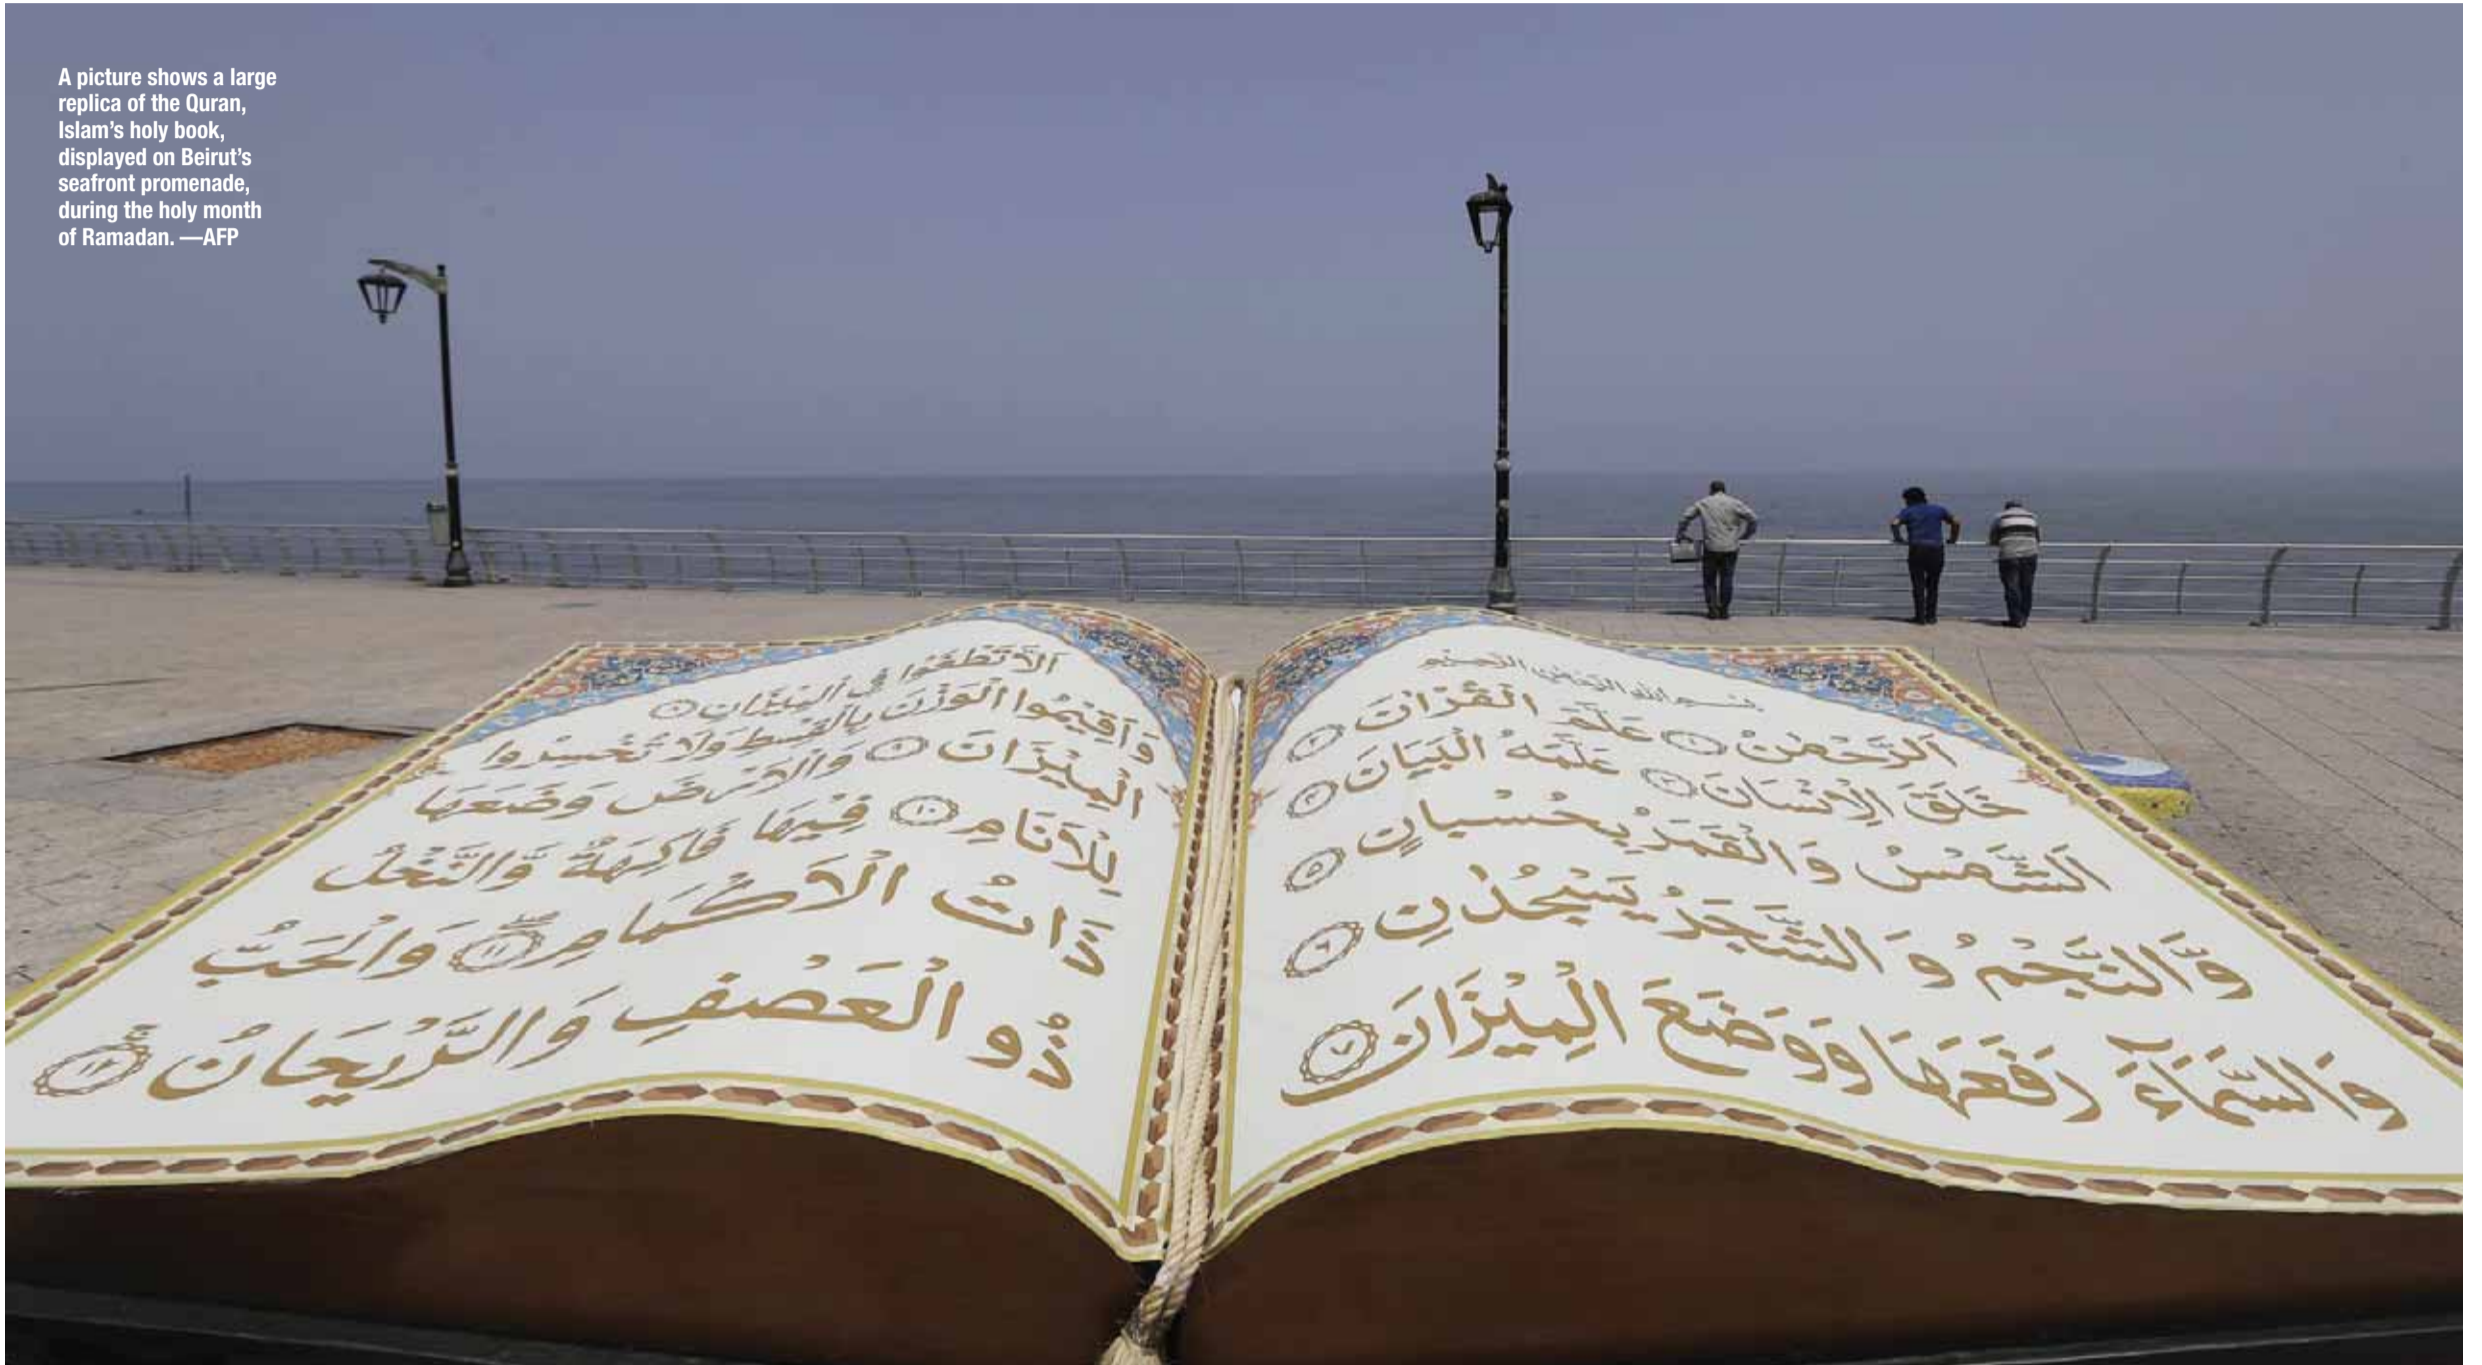 A picture shows a large
replica of the Quran,
Islam's holy book,
displayed on Beirut's
seafront promenade,
during the holy month
of Ramadan. —AFP
بسم الله الرحمن الرحيم
اَلرَّحْمٰنُ ١ عَلَّمَ الْقُرْاٰنَ ٢
خَلَقَ الْاِنْسَانَ ٣ عَلَّمَهُ الْبَيَانَ ٤
اَلشَّمْسُ وَالْقَمَرُ بِحُسْبَانٍ ٥
وَّالنَّجْمُ وَالشَّجَرُ يَسْجُدٰنِ ٦
وَالسَّمَآءَ رَفَعَهَا وَوَضَعَ الْمِيْزَانَ ٧
اَلَّا تَطْغَوْا فِي الْمِيْزَانِ ٨
وَاَقِيْمُوا الْوَزْنَ بِالْقِسْطِ وَلَا تُخْسِرُوا
الْمِيْزَانَ ٩ وَالْاَرْضَ وَضَعَهَا
لِلْاَنَامِ ١٠ فِيْهَا فَاكِهَةٌ وَّالنَّخْلُ
ذَاتُ الْاَكْمَامِ ١١ وَالْحَبُّ
ذُو الْعَصْفِ وَالرَّيْحَانُ ١٢